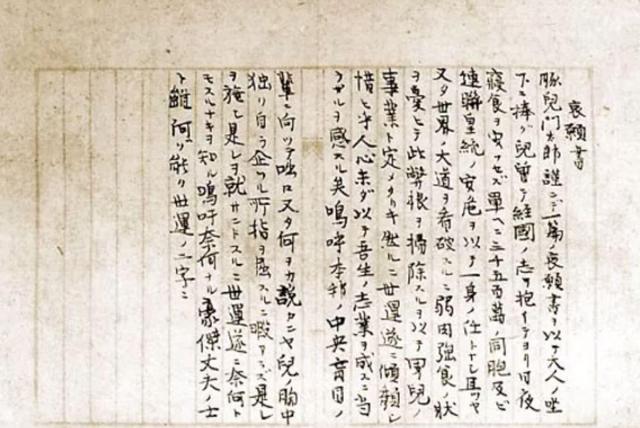 哀願書
豚児門太郎謹ンデ一篇ノ哀願書ヲ以テ大人ノ坐
下ニ捧グ児曾テ経國ノ志ヲ抱イテヨリ日夜
寝食ヲ安フセズ單ヘニ三千五百萬ノ同胞及ビ
連聯皇統ノ安危ヲ以テ一身ノ仕トナシ且ツヤ
又タ世界ノ大道ヲ看破スルニ弱肉強食ノ状
ヲ憂ヒテ此弊根ヲ掃除スルヲ以テ男児ノ
事業ト定メタリキ然ルニ世運遂ニ傾頽シ
惜ヒ乎人心未ダ以テ吾生ノ志業ヲ成スニ当
ラザルヲ感ズル矣嗚呼本邦ノ中央盲目ノ
輩ニ向ツテ咄々又タ何ヲカ説カンヤ児ノ胸中
独リ自ラ企ツル所指ヲ屈スルニ暇アラズ是レ
ヲ施シ是レヲ就サントスルニ世運遂ニ奈何ト
モスルナキヲ知ル嗚呼奈何ナル豪傑丈夫ノ士
ト雖何ゾ能ク世運ノ二字ニ